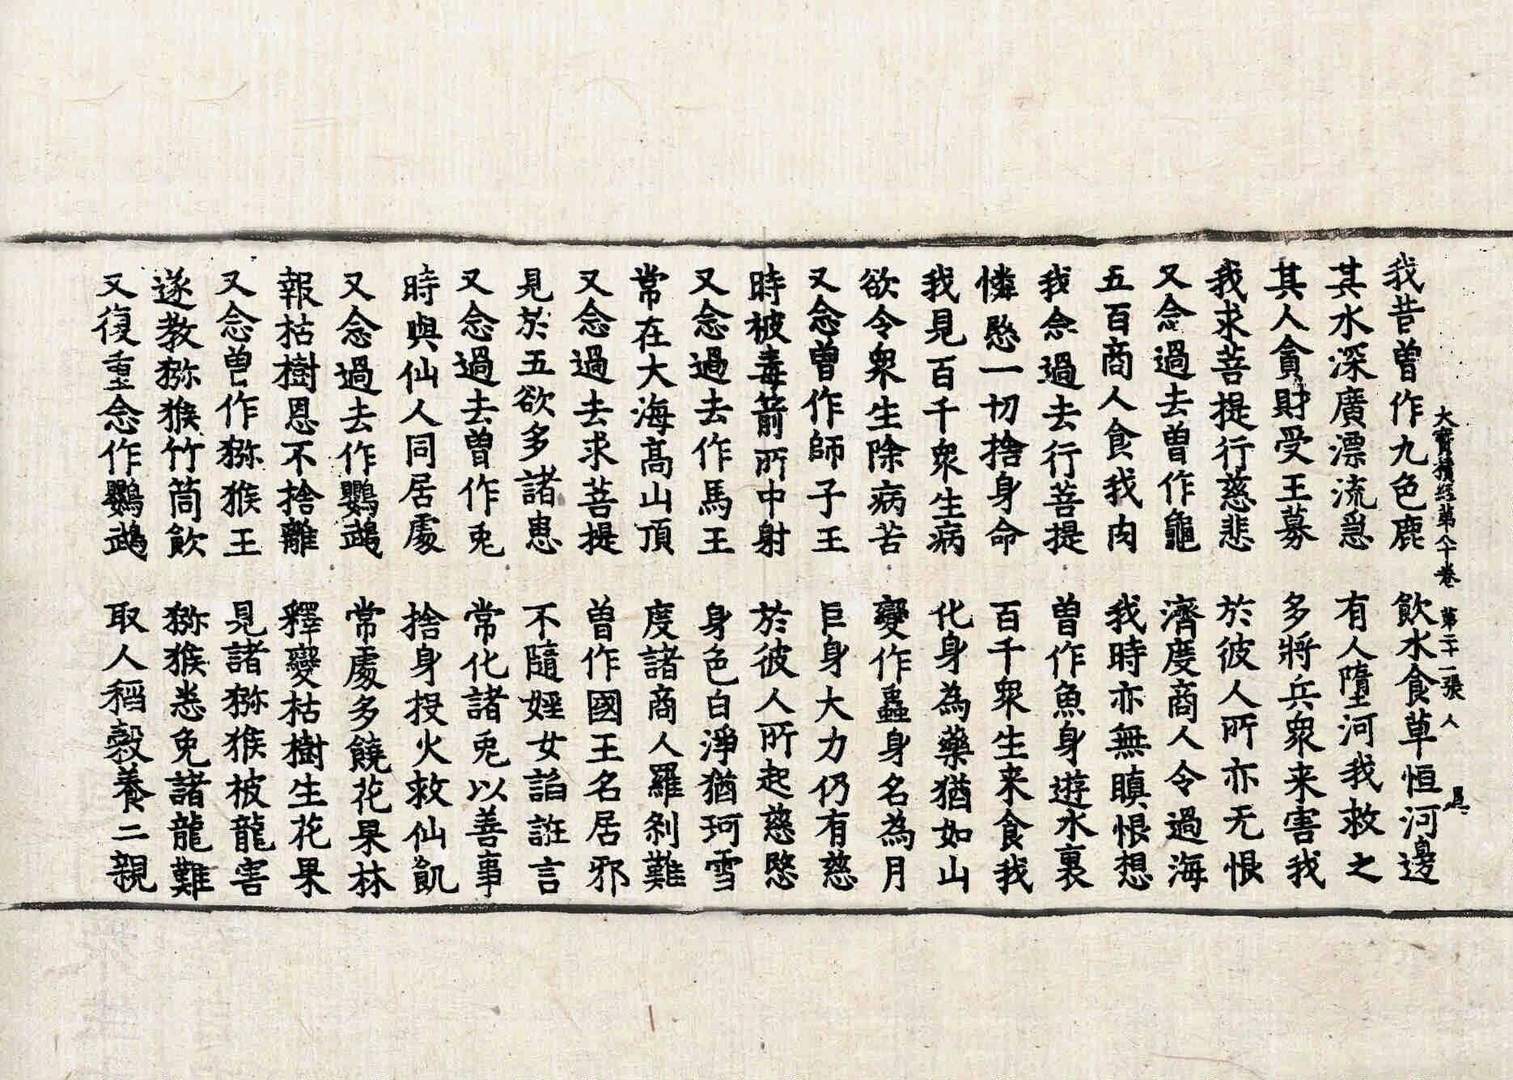 大寶積經第八十卷 第二十一張 人
我昔曾作九色鹿 飲水食草恒河邊
其水深廣漂流急 有人墮河我救之
其人貪財受王募 多將兵衆来害我
我求菩提行慈悲 於彼人所亦无恨
又念過去曾作龜 濟度商人令過海
五百商人食我肉 我時亦無瞋恨想
我念過去行菩提 曾作魚身遊水裏
憐愍一切捨身命 百千衆生来食我
我見百千衆生病 化身為藥猶如山
欲令衆生除病苦 變作蟲身名為月
又念曾作師子王 巨身大力仍有慈
時被毒箭所中射 於彼人所起慈愍
又念過去作馬王 身色白淨猶珂雪
常在大海高山頂 度諸商人羅剎難
又念過去求菩提 曾作國王名居邪
見於五欲多諸患 不隨婬女諂誑言
又念過去曾作兎 常化諸兎以善事
時與仙人同居處 捨身投火救仙飢
又念過去作鸚鵡 常處多饒花果林
報枯樹恩不捨離 釋變枯樹生花果
又念曾作猕猴王 見諸猕猴被龍害
遂教猕猴竹筒飲 猕猴悉免諸龍難
又復重念作鸚鵡 取人稻縠養二親